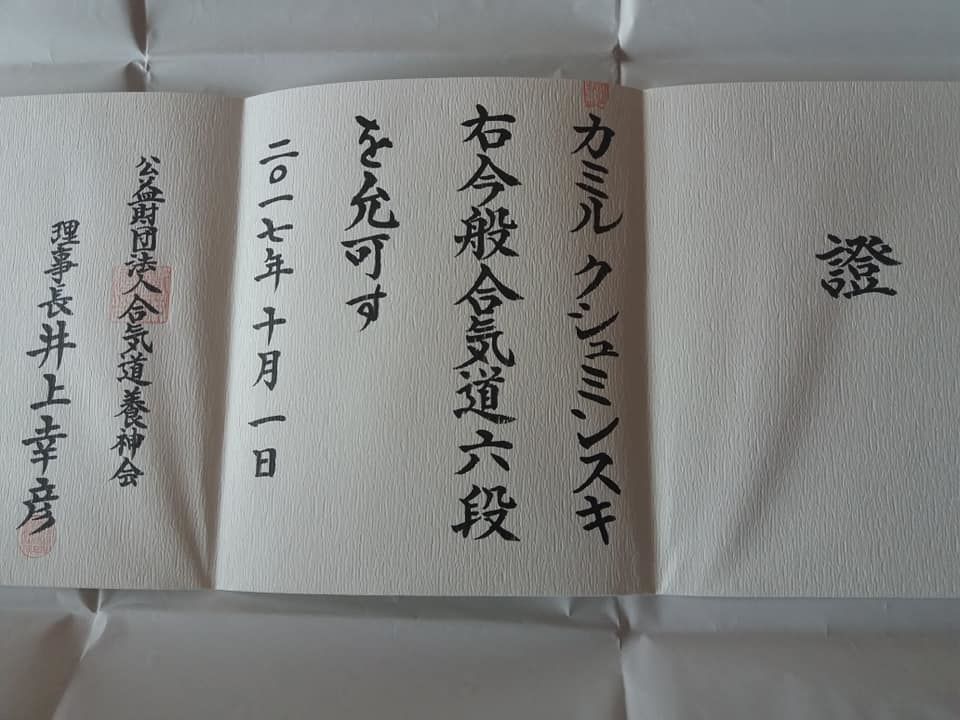 證
カミル クシュミンスキ
右今般合気道六段
を允可す
二〇一七年 十月 一日
公益財団法人合気道養神会
理事長井上幸彦